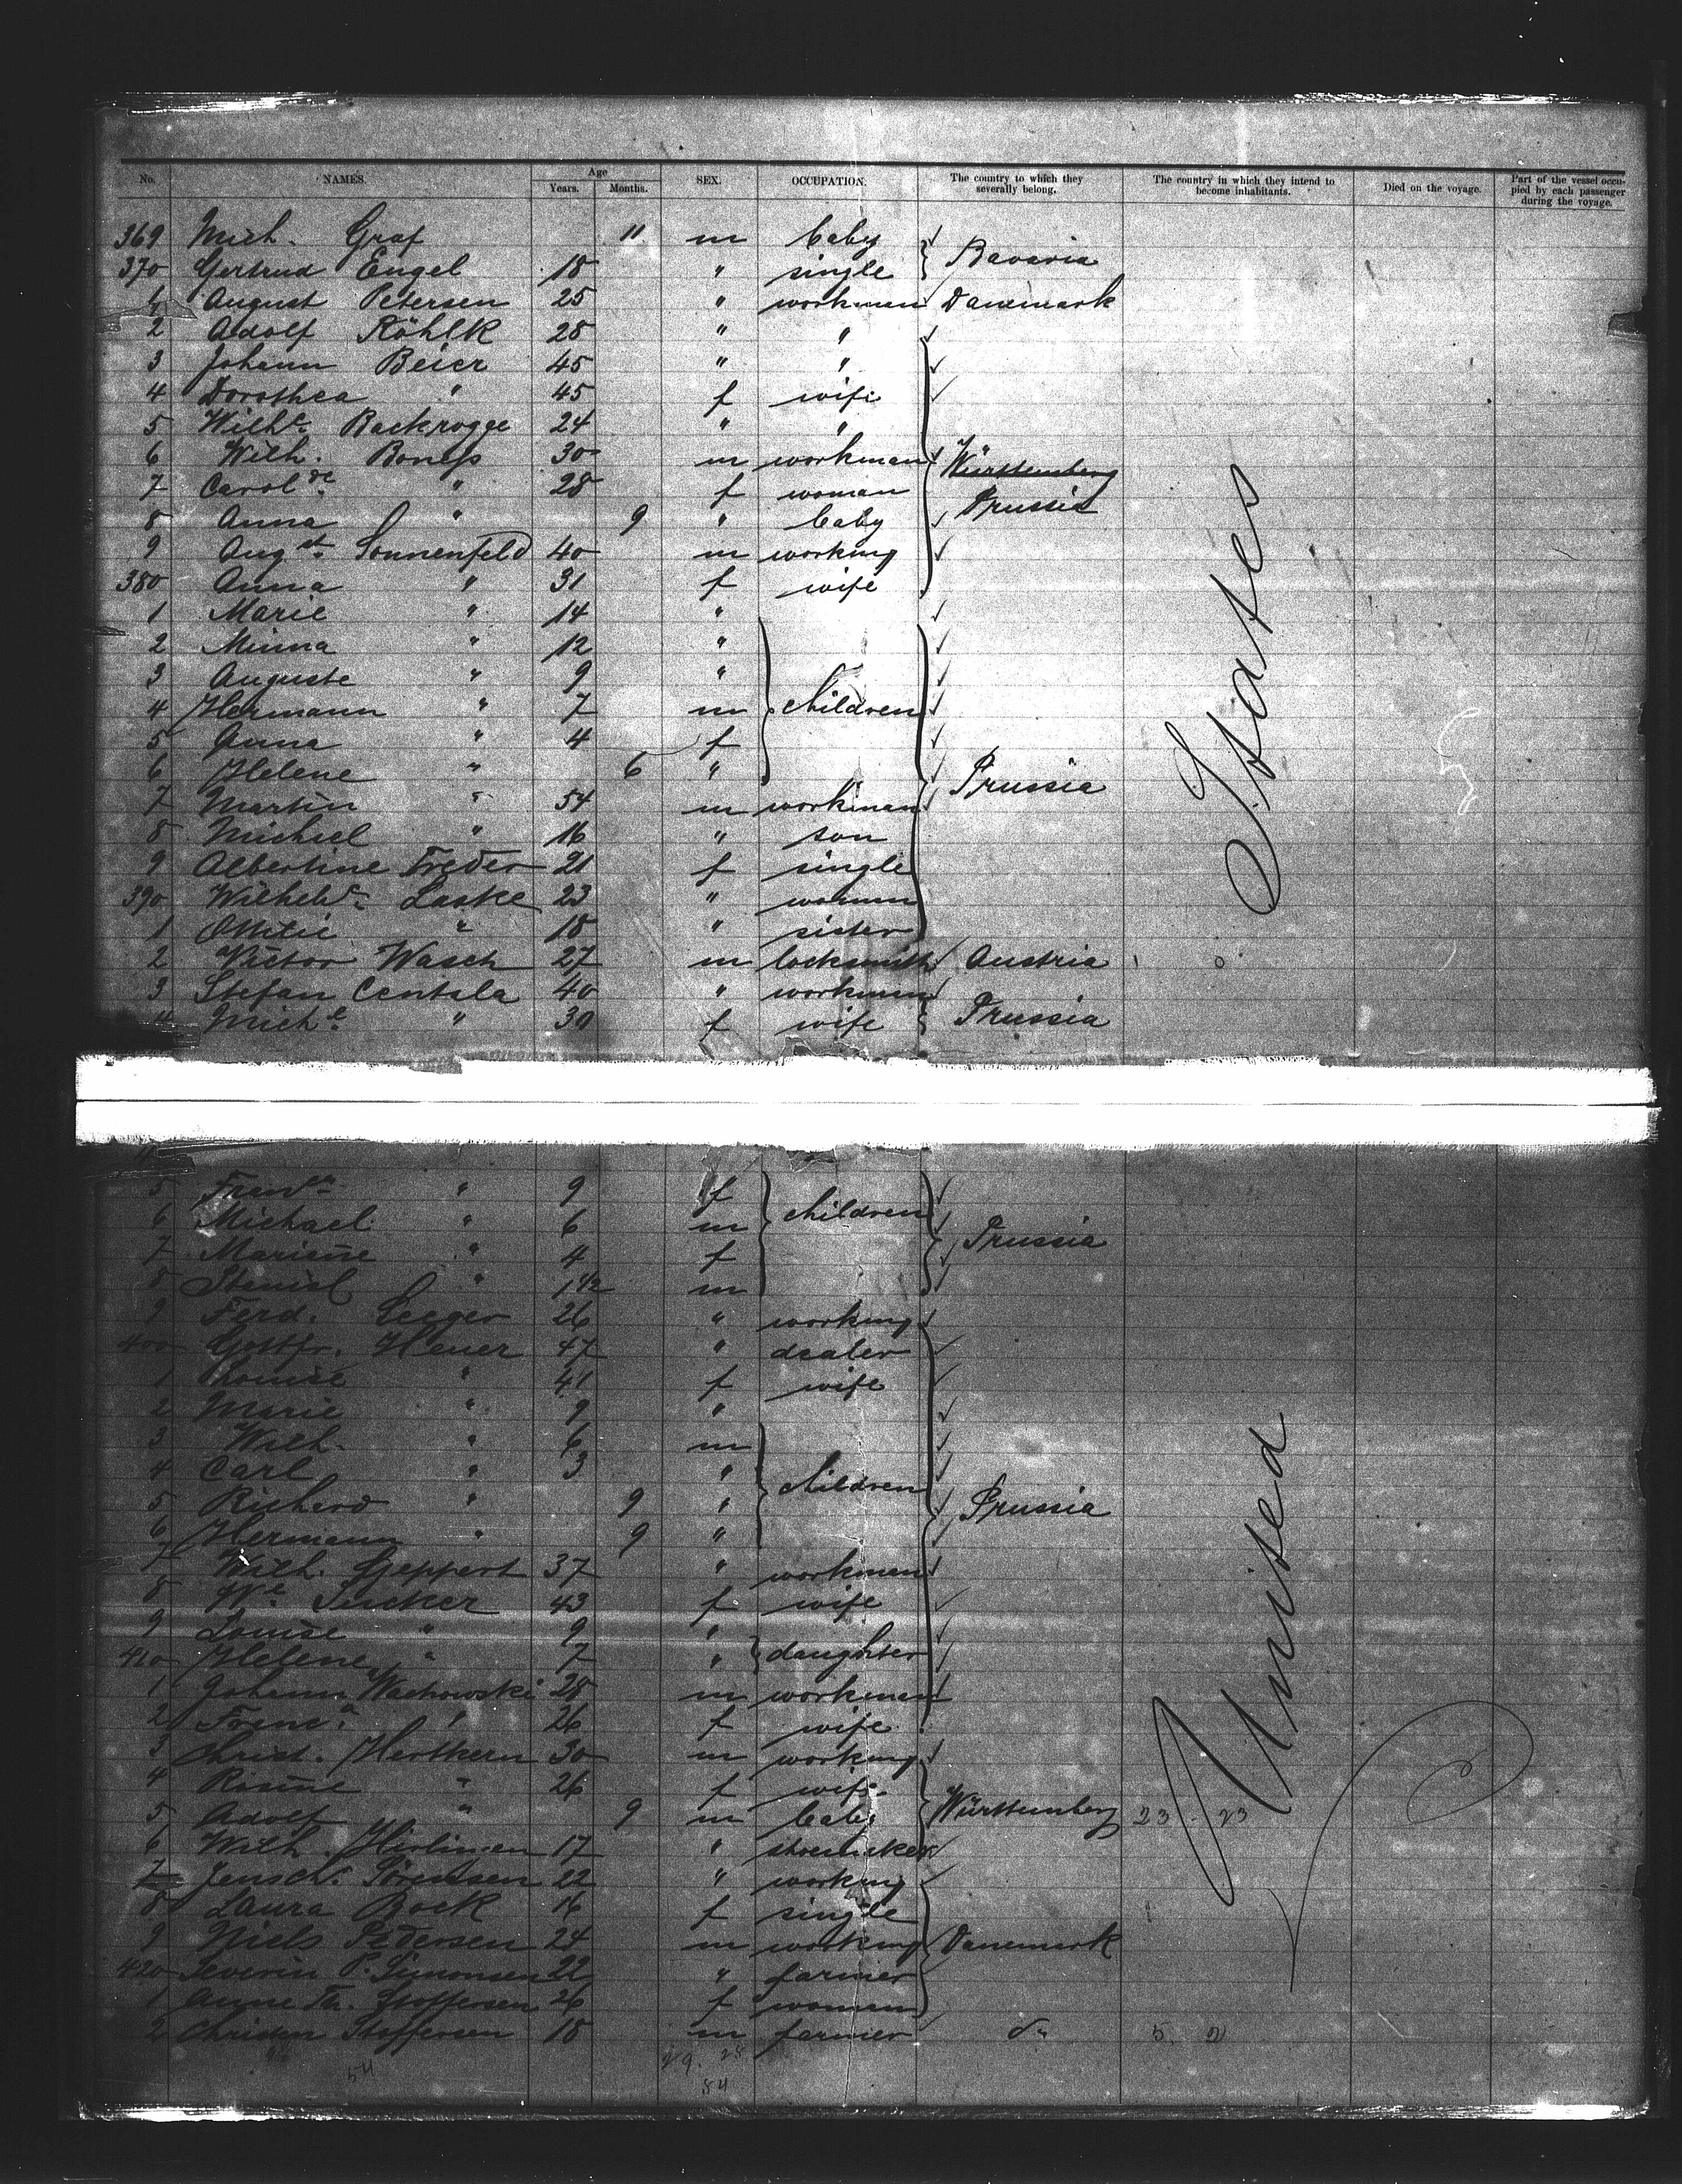 No. NAMES. Age Years. Months. SEX. OCCUPATION. The country to which they severally belong. The country in which they intend to become inhabitants. Died on the voyage. Part of the vessel occupied by each passenger during the voyage.
369 Mich. Graf 11 m baby
370 Gertrud Engel 18 " single Bavaria
August Petersen 25 " workman Danemark
2 Adolf Röhlk 28 " "
3 Johann Beier 45 " "
4 Dorothea " 45 f wife
5 Wilhe. Backrogge 24 " "
6 Wilh. 30 m workman Württemberg
7 " 28 f woman Prussia
8 Anna " 9 " baby
9 Augst. Sonnenfeld 40 m working
380 Anna " 31 f wife
1 Marie " 14 "
2 Minna " 12 "
3 Auguste " 9 "
4 Hermann " 7 m children
5 Anna " 4 f
6 Helene " 6 " Prussia
7 Martin " 54 m workman
8 Michael " 16 " son
9 Albertine Treder 21 f single
390 Laske 23 " woman
1 Ottilie " 18 " sister
2 Victor Wasch 27 m locksmith Austria
3 Stefan Centala 40 " workman
4 Miche. " 30 f wife Prussia
States
5 " 9 f children
6 Michael " 6 m
7 " 4 f Prussia
8 Stanisl " 1 1/2 m
9 Ferd. Seeger 26 " working
400 Gottfr. Heuer 47 " dealer
1 Louise " 41 f wife
2 Marie " 9 "
3 Wilh. " 6 m
4 Carl " 3 " children
5 Richard " 9 " Prussia
6 Hermann " 9 "
7 Wilh. Geppert 37 " workman
8 We. 43 f wife
9 Louise " 9 "
410 Helene " 7 " daughter
1 Johann Wachowski 28 m workman
2 " 26 f wife
3 Christ. Hertkern 30 m working
4 Rosine " 26 f wife
5 Adolf " 9 m baby Württemberg 23 . 23
6 Wilh. 17 " shoemaker
7 Sörensen 22 " working
8 Laura Bock 16 f single
9 Niels Pedersen 24 m working Danemark
420 Severin P. Simonsen 22 " farmer
1 Anne Th. Stoffersen 26 f woman
2 Christen Stoffersen 18 m farmer do 5. 2
United
54 29. 25
54